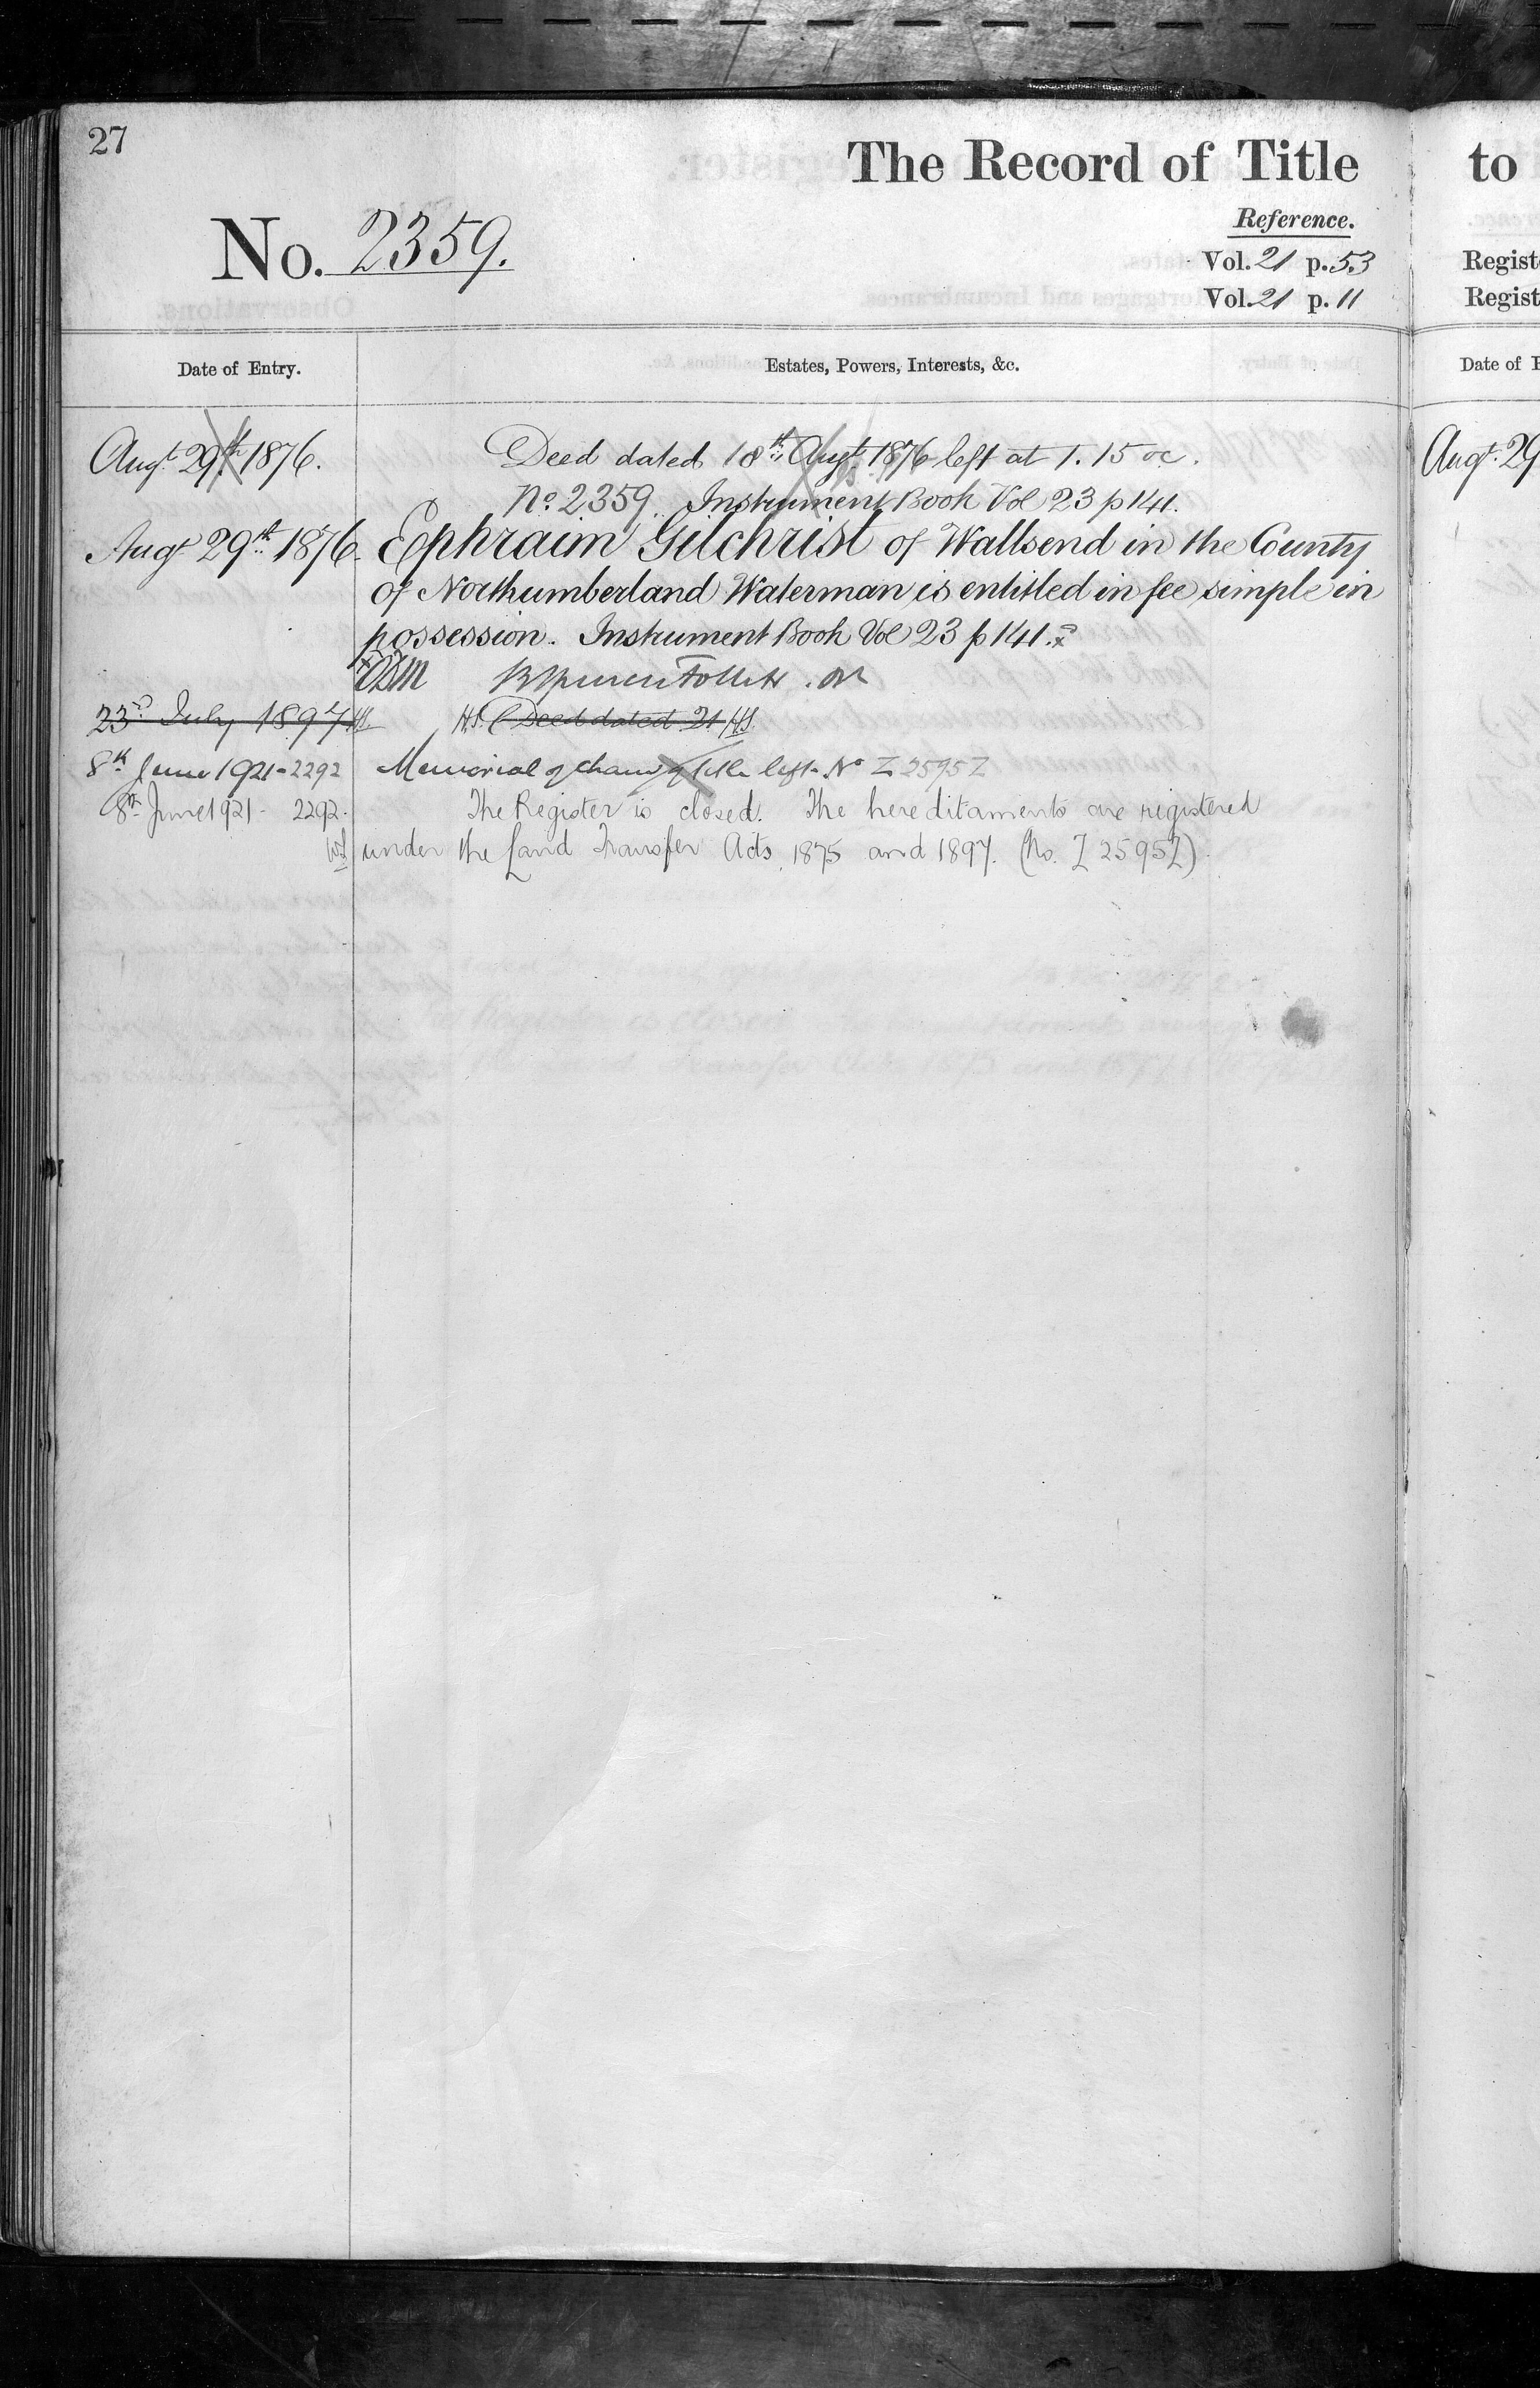 27
The Record of Title
to
No. 2359.
Reference.
Vol. 21 p. 53
Regist
Vol. 21 p. 11
Regist
Date of Entry.
Estates, Powers, Interests, &c.
Date of E
Augt. 29th 1876.
Deed dated 18th Augt. 1876 left at 1.15 oc.
Augt. 29
No. 2359. Instrument Book Vol 23 p 141.
Augt 29th 1876.
Ephraim Gilchrist of Wallsend in the County
of Northumberland Waterman is entitled in fee simple in
possession. Instrument Book Vol 23 p 141.
23rd July 1897 HS
HS (Deed dated 21 HS
8th June 1921 - 2292
Memorial of change of title left. No Z 2595Z
8th June 1921 - 2292.
The Register is closed. The hereditaments are registered
under the Land Transfer Acts, 1875 and 1897. (No. Z 2595Z)